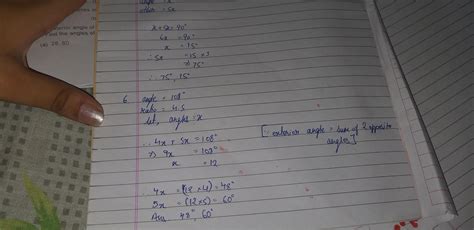 angle of
find the angles of
angle = x
other = 5x
x + 5x = 90°
6x = 90°
x = 15°
∴ 5x = 15 × 5
⇒ 75°
∴ 75°, 15°
6. angle = 108°
ratio = 4:5
let, angles = x
∴ 4x + 5x = 108°
⇒ 9x = 108°
x = 12
[∵ exterior angle = sum of 2 opposite
angles]
∴ 4x = (12 × 4) = 48°
5x = (12 × 5) = 60°
Ans 48°, 60°